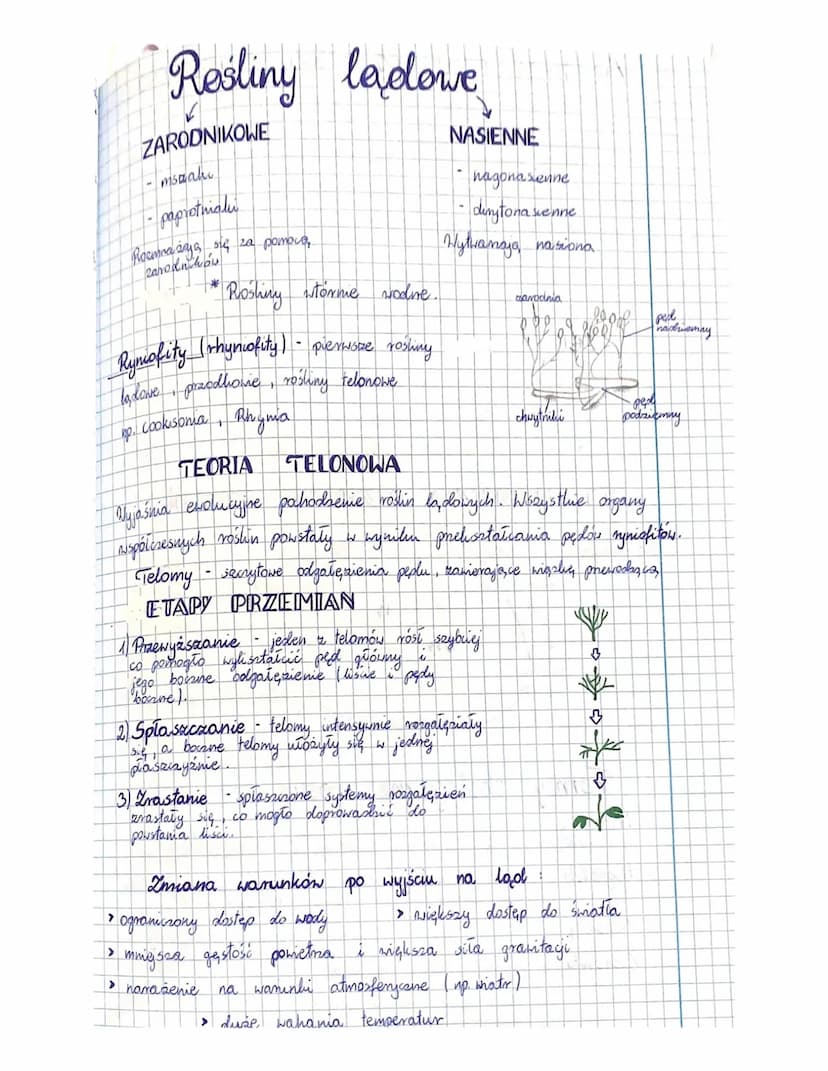 Rośliny lądowe
ZARODNIKOWE
- mszaki
- paprotniki
Rozmnażają się za pomocą
zarodników
NASIENNE
- nagonasienne
- okrytonasienne
Wytwarzają nasiona
* Rośliny wtórnie wodne.
Ryniofity (rhyniofity) - pierwsze rośliny
lądowe, przodkowie, rośliny telomowe
np. cooksonia, Rhynia
zarodnia
pęd
nadziemny
chwytniki
pęd
podziemny
TEORIA TELONOWA
Wyjaśnia ewolucyjne pochodzenie roślin lądowych. Wszystkie organy
współczesnych roślin powstały w wyniku przekształcania pędów ryniofitów.
Telomy - szczytowe odgałęzienia pędu, zawierające wiązkę przewodzącą
ETAPY PRZEMIAN
1) Przewyższanie - jeden z telomów rósł szybciej
co pomogło wykształcić pęd główny i
jego boczne odgałęzienie (liście i pędy
boczne).
2) Spłaszczanie - telomy intensywnie rozgałęziały
się, a boczne telomy ułożyły się w jednej
płaszczyźnie.
3) Zrastanie - spłaszczone systemy rozgałęzień
zrastały się, co mogło doprowadzić do
powstania liści.
Zmiana warunków po wyjściu na ląd:
> ograniczony dostęp do wody
> większy dostęp do światła
> mniejsza gęstość powietrza i większa siła grawitacji
> narażenie na warunki atmosferyczne (np. wiatr)
> duże wahania temperatur